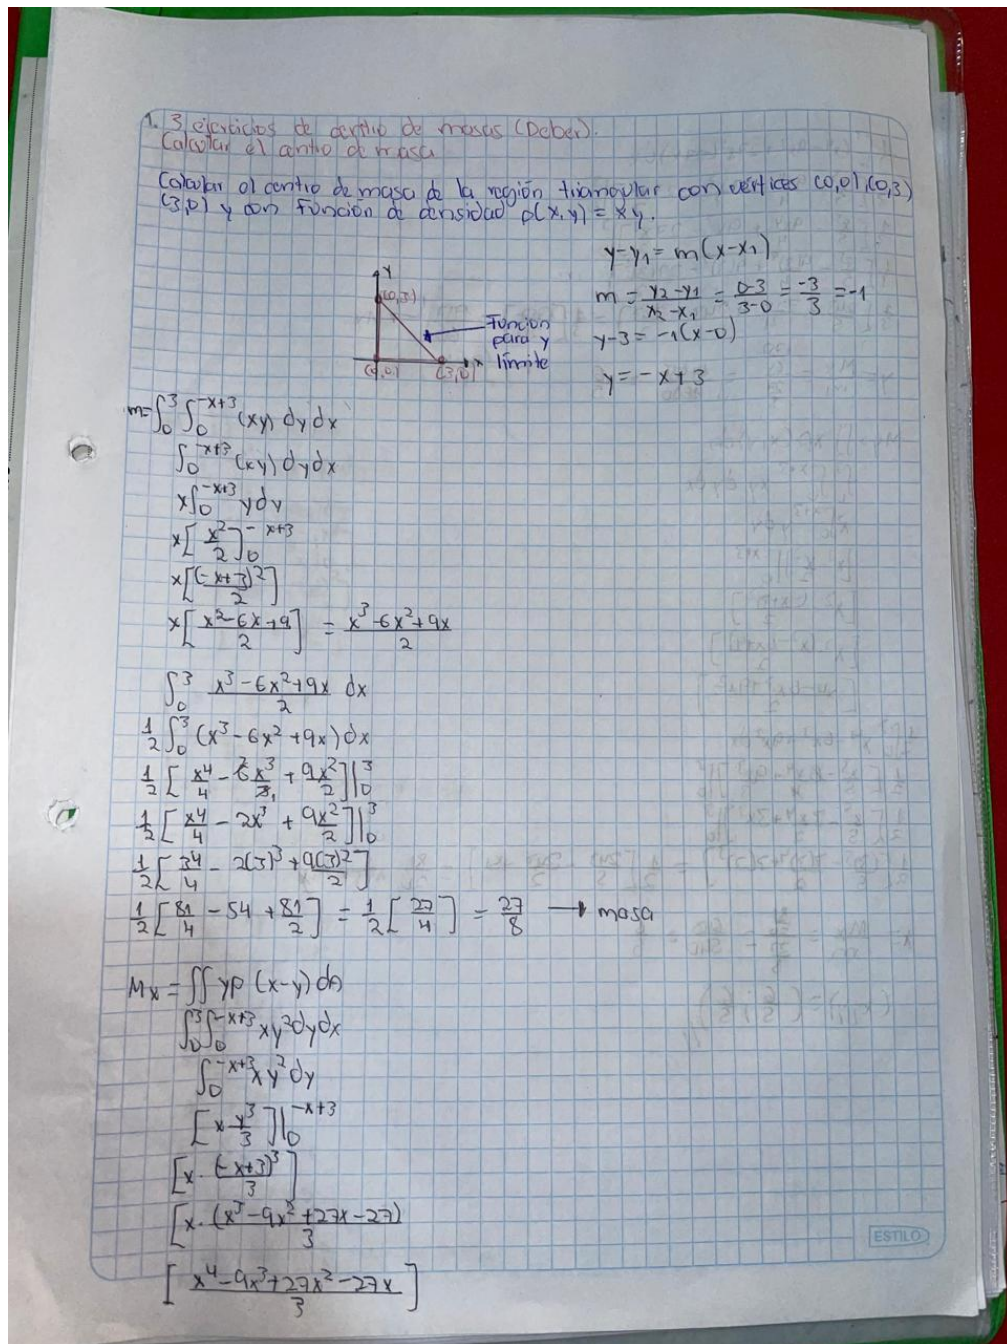 1. 3 ejercicios de centro de masas (Deber).
Calcular el centro de masa
Calcular el centro de masa de la región triangular con vértices (0,0), (0,3)
(3,0) y con función de densidad ρ(x,y) = xy.
y
(0,3)
Funcion
para y
límite
x
(0,0)
(3,0)
y-y₁ = m(x-x₁)
m = y₂-y₁/x₂-x₁ = 0-3/3-0 = -3/3 = -1
y-3 = -1(x-0)
y = -x+3
m=∫₀³ ∫₀^-x+3 (xy) dy dx
∫₀^-x+3 (xy) dy dx
x∫₀^-x+3 y dy
x[x²/2]₀^-x+3
x[(-x+3)²/2]
x[x²-6x+9/2] = x³-6x²+9x/2
∫₀³ x³-6x²+9x/2 dx
1/2 ∫₀³ (x³-6x²+9x) dx
1/2 [x⁴/4 - 6x³/3 + 9x²/2]|₀³
1/2 [x⁴/4 - 2x³ + 9x²/2]|₀³
1/2 [3⁴/4 - 2(3)³ + 9(3)²/2]
1/2 [81/4 - 54 + 81/2] = 1/2 [27/4] = 27/8 → masa
Mx = ∬ yρ (x-y) dA
∫₀³∫₀^-x+3 xy² dy dx
∫₀^-x+3 xy² dy
[x y³/3]|₀^-x+3
[x · (-x+3)³/3]
[x · (x³-9x²+27x-27)/3
[x⁴-9x³+27x²-27x/3]
ESTILO